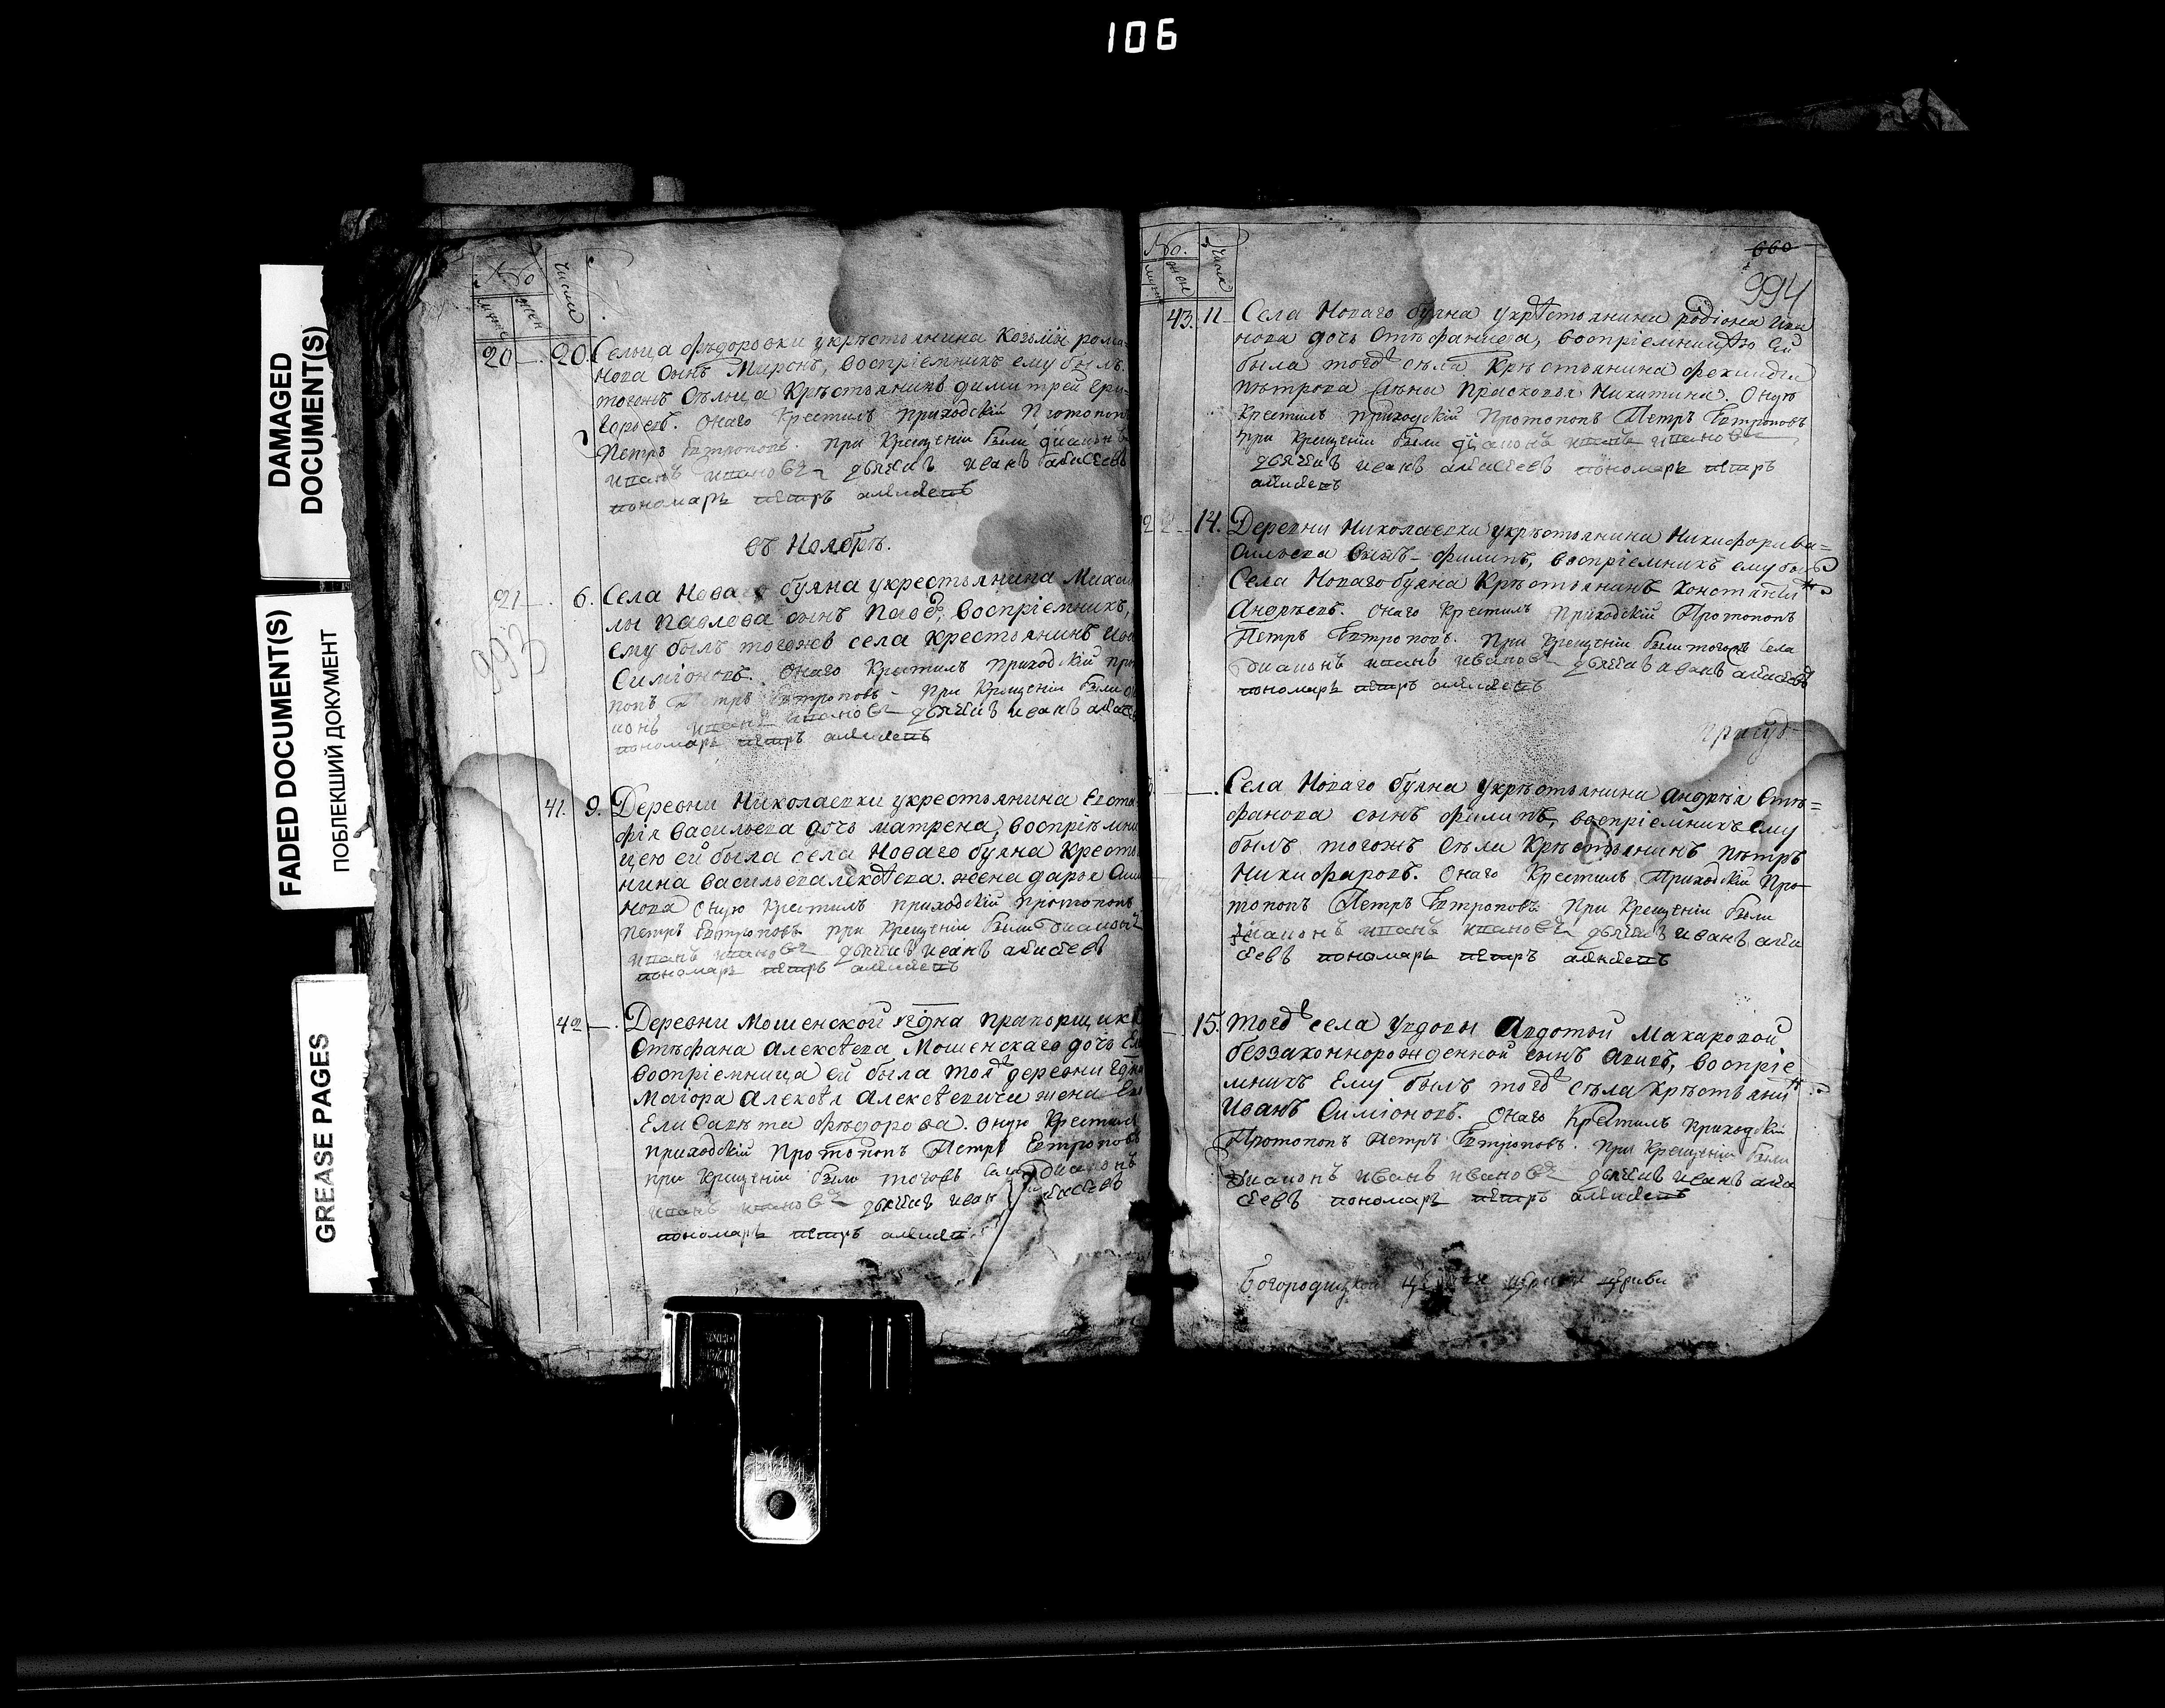 106
DAMAGED
DOCUMENT(S)
FADED DOCUMENT(S)
ПОБЛЕКШИЙ ДОКУМЕНТ
GREASE PAGES
No
числа
20 — 20. Сельца Фѣдоровки укрѣстьянина Козьмы рома-
нова сынъ Миронъ, воспріемникъ ему былъ
тогожъ сѣльца Крѣстьянинъ димитрей Гри-
горьевъ. Онаго Крестилъ приходскій Протопоп
Петръ Евтроповъ. при Крещеніи были диаконъ
иванъ ивановъ дьячекъ иванъ алексеевъ
пономарь петръ алексеевъ
въ Ноябрѣ.
21 — 6. Села Новаго буяна укрестьянина Михаи
лы Павлова сынъ Павелъ, воспріемникъ
ему былъ тогожъ села крестьянинъ Ива
Симіоновъ. Онаго Крестилъ приходскій про
попъ Петръ Евтроповъ при Крещеніи были
конъ иванъ ивановъ дьячекъ иванъ алексе
пономарь петръ алексеевъ
993
41. 9. Деревни Николаевки укрестьянина Евста
фія Васильева дочь матрена, воспріемни
цею ей была села Новаго буяна Кресть
нина Василья алексѣева. жена дарья Сим
нова Оную Крестилъ приходскій протопопъ
Петръ Евтроповъ при Крещеніи были диаконъ
иванъ ивановъ дьячекъ иванъ алексеевъ
пономарь петръ алексеевъ
42 — Деревни Мошенской Гдна Прапорщика
Стѣфана Алексѣева Мошенскаго дочь
воспріемница ей была той деревни Гдна
Маіора Алексѣя Алексѣевича жена
Елисавѣта Фѣдорова. Оную Крестилъ
приходскій Протопопъ Петръ Евтроповъ
при Крещеніи были тогожъ села диаконъ
иванъ ивановъ дьячекъ иван алексеевъ
пономарь петръ алексеев
No.
числа
660
994
43. 11 Села Новаго буяна укрѣстьянина родіона Ива
нова дочь Стѣфанида, воспріемницею ей
была тогожъ сѣла Крѣстьянина
Пѣтрова жѣна Прасковья Никитина. Оную
Крестилъ приходскій Протопопъ Петръ Евтроповъ
при Крещеніи были діаконъ иванъ ивановъ
дьячекъ иванъ алексеевъ пономарь петръ
алексеевъ
14. Деревни Николаевки укрѣстьянина Никифора ва=
сильева сынъ филипъ, воспріемникъ ему былъ
Села Новаго буяна Крѣстьянинъ Константинъ
Андрѣевъ. Онаго Крестилъ Приходскій Протопопъ
Петръ Евтроповъ. При Крещеніи были тогожъ села
диаконъ иванъ ивановъ дьячекъ иванъ алексеевъ
пономарь петръ алексеевъ
— . Села Новаго буяна Укрѣстьянина Андрѣя Стѣ=
фанова сынъ филипъ, воспріемникъ ему
былъ тогожъ сѣла Крѣстьянинъ Пѣтръ
Никифаровъ. Онаго Крестилъ Приходскій Про-
топопъ Петръ Евтроповъ При Крещеніи были
діаконъ иванъ ивановъ дьячекъ иванъ алек
сеевъ пономарь петръ алексеевъ
15. Тогожъ села Увдовы Авдотьи Макаровой
беззаконнорожденной сынъ Авивъ, воспріе
мникъ Ему былъ тогожъ сѣла крѣстьянинъ
Иванъ Симіоновъ. Онаго Крестилъ Приходскій
Протопопъ Петръ Евтроповъ. при Крещеніи были
диаконъ иванъ ивановъ дьячекъ иванъ алек
сеевъ пономарь петръ алексеевъ
Богородицкой